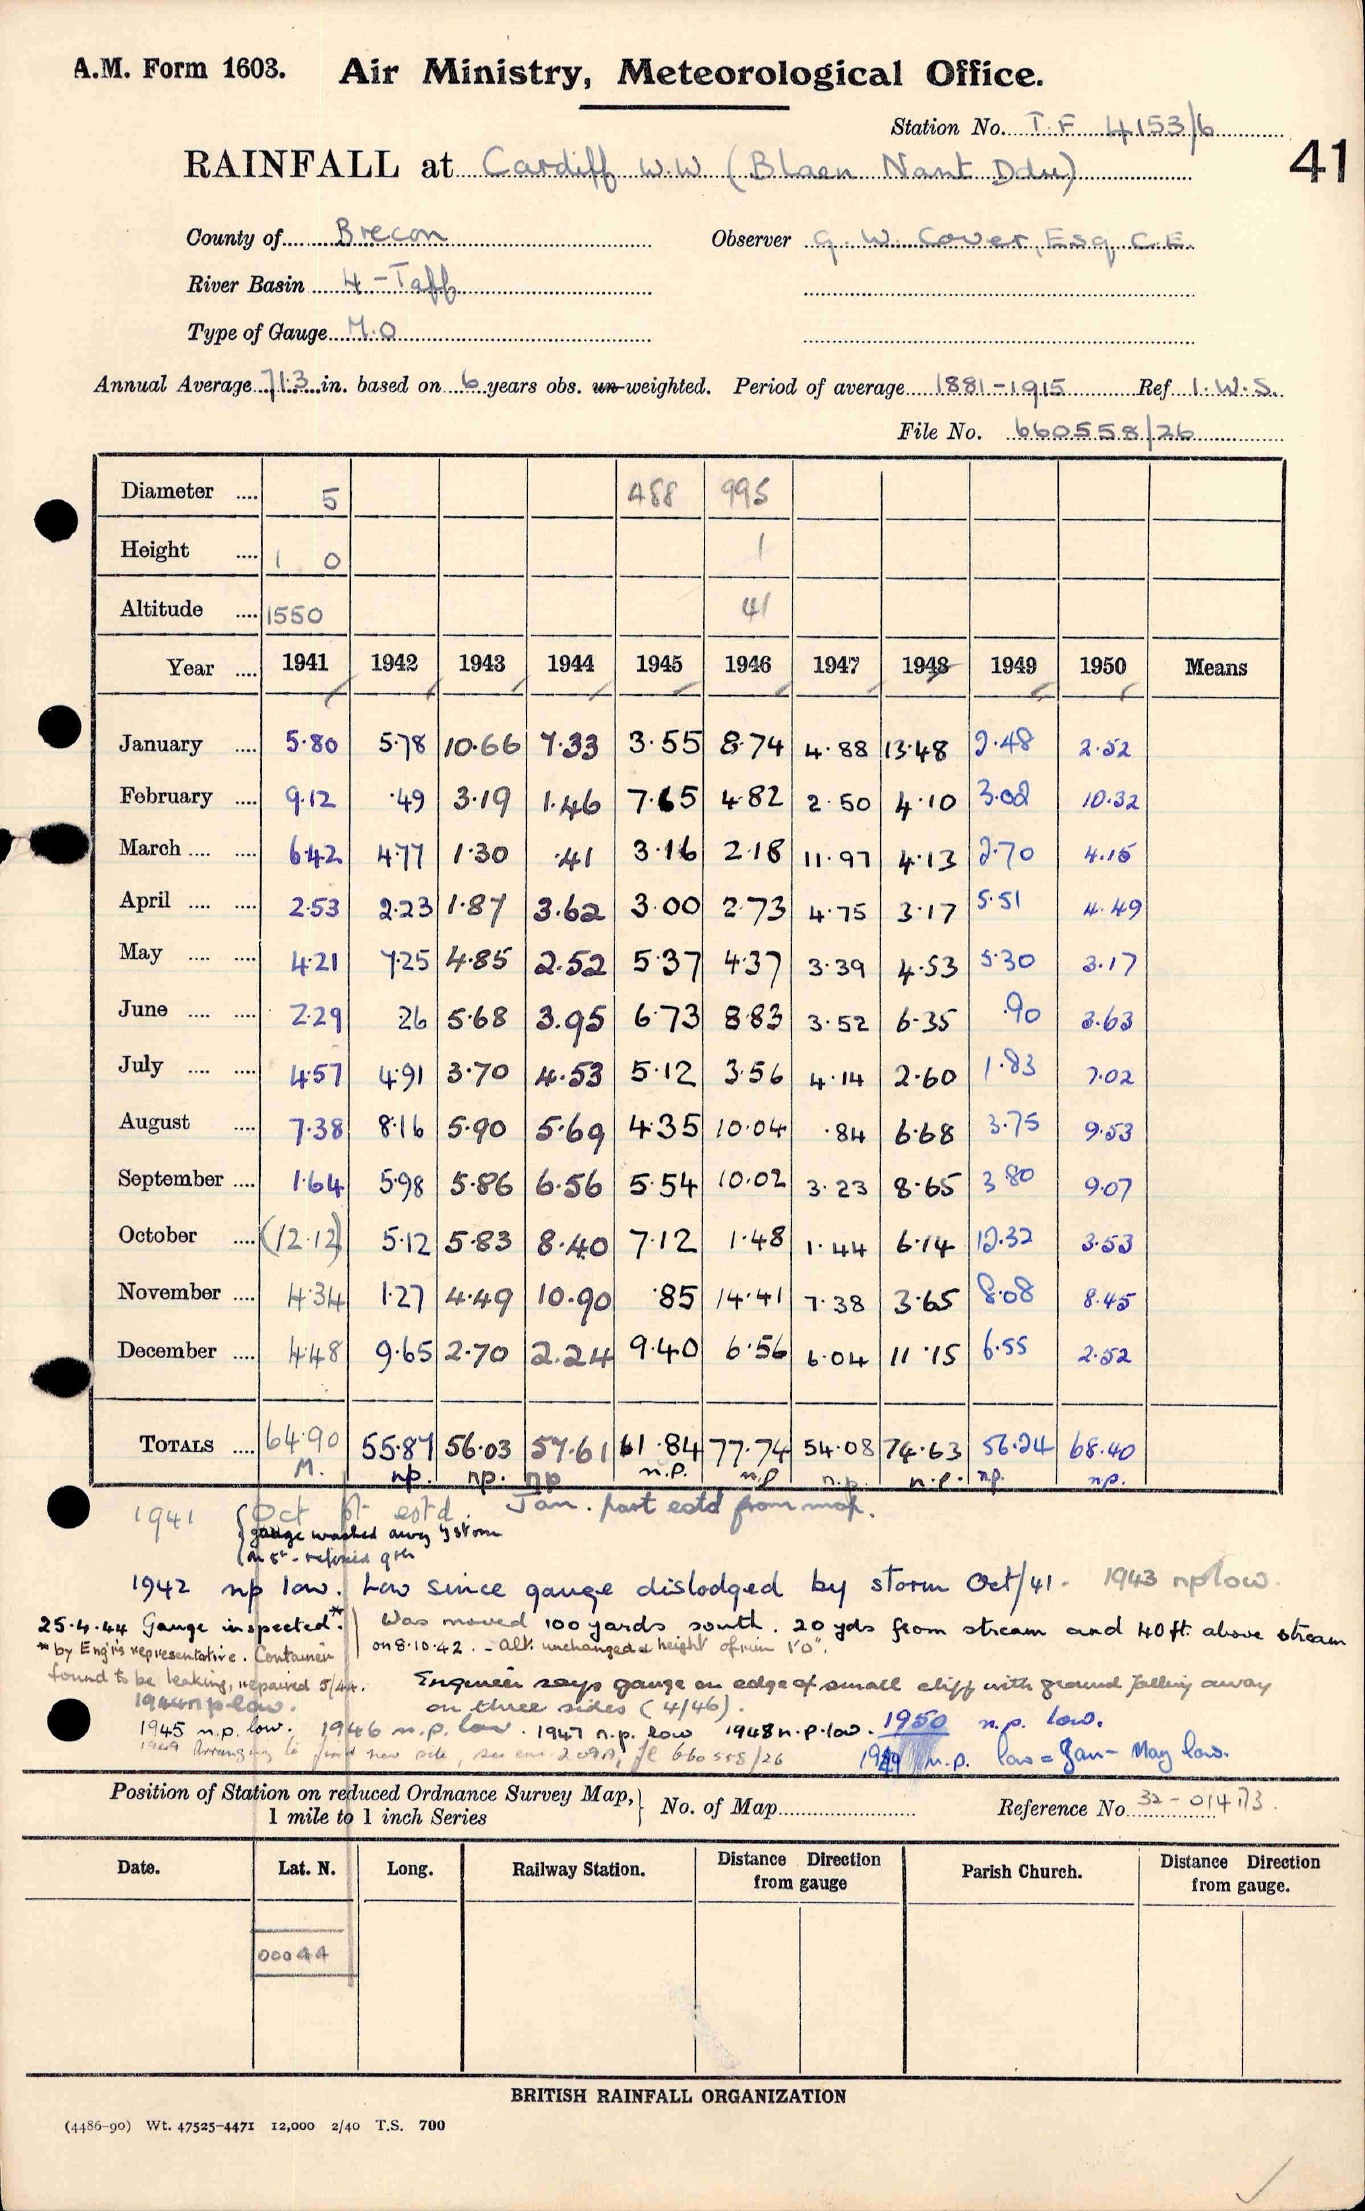 A.M. Form 1603. Air Ministry, Meteorological Office.
Station No. T.F 4153/6
41
RAINFALL at Cardiff W.W (Blaen Nant Ddu)
County of Brecon Observer G. W. Cover, Esq C.E.
River Basin 4 - Taff
Type of Gauge M.O
Annual Average 71.3 in. based on 6 years obs. un-weighted. Period of average 1881-1915 Ref I.W.S.
File No. 660558/26
Diameter .... 5 488 995
Height .... 1 0 1
Altitude .... 1550 41
Year .... 1941 1942 1943 1944 1945 1946 1947 1948 1949 1950 Means
January .... 5.80 5.78 10.66 7.33 3.55 8.74 4.88 13.48 2.48 2.52
February .... 9.12 .49 3.19 1.46 7.65 4.82 2.50 4.10 3.02 10.32
March .... .... 6.42 4.77 1.30 .41 3.16 2.18 11.97 4.13 2.70 4.15
April .... .... 2.53 2.23 1.87 3.62 3.00 2.73 4.75 3.17 5.51 4.49
May .... .... 4.21 7.25 4.85 2.52 5.37 4.37 3.39 4.53 5.30 3.17
June .... .... 2.29 26 5.68 3.95 6.73 8.83 3.52 6.35 .90 3.63
July .... .... 4.57 4.91 3.70 4.53 5.12 3.56 4.14 2.60 1.83 7.02
August .... 7.38 8.16 5.90 5.69 4.35 10.04 .84 6.68 3.75 9.53
September .... 1.64 5.98 5.86 6.56 5.54 10.02 3.23 8.65 3.80 9.07
October .... (12.12) 5.12 5.83 8.40 7.12 1.48 1.44 6.14 12.32 3.53
November .... 4.34 1.27 4.49 10.90 .85 14.41 7.38 3.65 8.08 8.45
December .... 4.48 9.65 2.70 2.24 9.40 6.56 6.04 11.15 6.55 2.52
TOTALS .... 64.90 55.87 56.03 57.61 61.84 77.74 54.08 74.63 56.24 68.40
M. np. np. np n.p. np n.p. n.p. np. np.
1941 Oct pt estd. Jan. part estd from map.
gauge washed away by storm
on 5th - refixed 9th
1942 np low. Low since gauge dislodged by storm Oct/41. 1943 np low.
25.4.44 Gauge inspected*. Was moved 100 yards south. 20 yds from stream and 40 ft. above stream
* by Eng'rs representative. Container on 8.10.42. - Alt. unchanged & height of rim 1'0".
found to be leaking, repaired 5/44. Engineer says gauge on edge of small cliff with ground falling away
1944 np low. on three sides (4/46).
1945 n.p. low. 1946 n.p. low. 1947 n.p. low 1948 n.p. low. 1950 n.p. low.
1949 Arranging to find new site, see enc. 209A, file 660558/26 1949 n.p. low = Jan - May low.
Position of Station on reduced Ordnance Survey Map, 1 mile to 1 inch Series } No. of Map Reference No. 32-014713.
Date. Lat. N. Long. Railway Station. Distance Direction from gauge Parish Church. Distance Direction from gauge.
00044
BRITISH RAINFALL ORGANIZATION
(4486-90) Wt. 47525-4471 12,000 2/40 T.S. 700